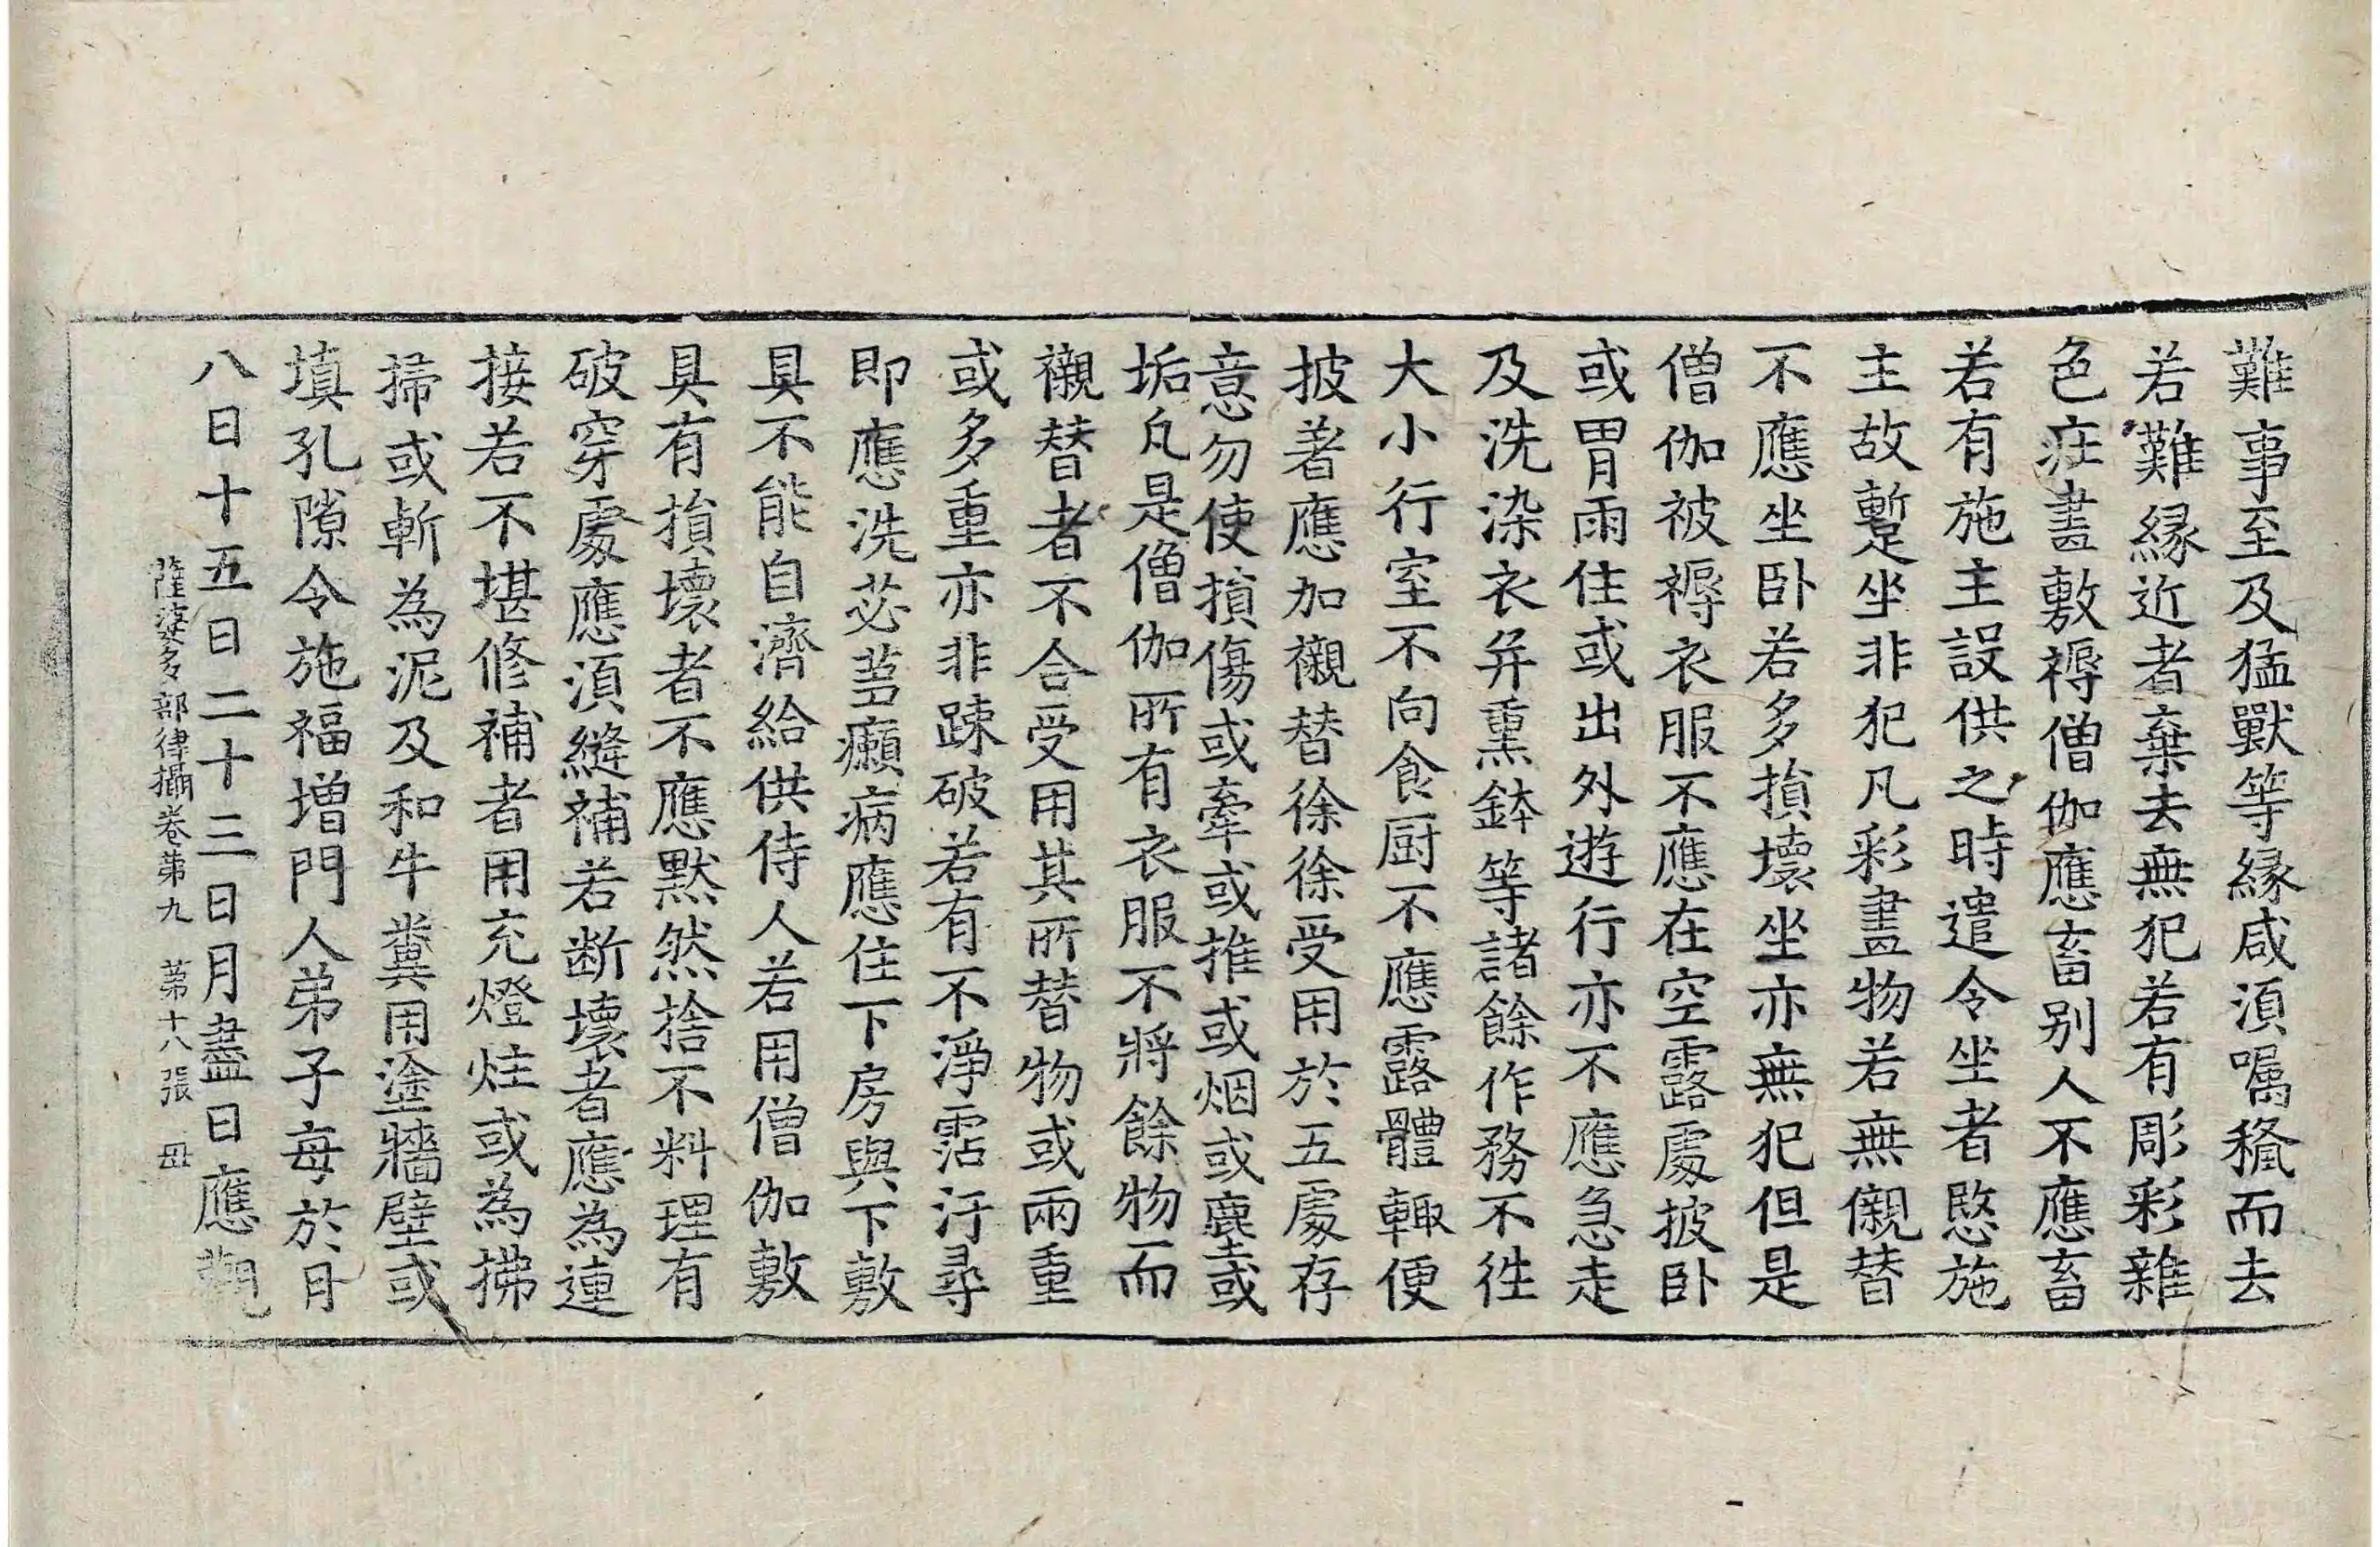 難事至及猛獸等縁咸湏囑稺而去
若難縁近者棄去無犯若有彫彩雜
色疘畫敷褥僧伽應畜别人不應畜
若有施主設供之時遣令坐者愍施
主故蹔坐非犯凡彩畫物若無儭替
不應坐卧若多損壞坐亦無犯但是
僧伽被褥衣服不應在空露處披卧
或冐雨住或出外遊行亦不應急走
及洗染衣并熏鉢等諸餘作務不徃
大小行室不向食厨不應露體輙便
披著應加襯替徐徐受用於五處存
意勿使損傷或牽或推或烟或塵或
垢凡是僧伽所有衣服不將餘物而
襯替者不合受用其所替物或兩重
或多重亦非踈破若有不淨霑汙尋
即應洗苾芻癩病應住下房與下敷
具不能自濟給供侍人若用僧伽敷
具有損壞者不應默然捨不料理有
破穿處應湏縫補若断壞者應為連
接若不堪修補者用充燈炷或為拂
掃或斬為泥及和牛糞用塗牆壁或
填孔隙令施福增門人弟子每於月
八日十五日二十三日月盡日應觀
薩婆多部律攝卷第九 第十八張 毋